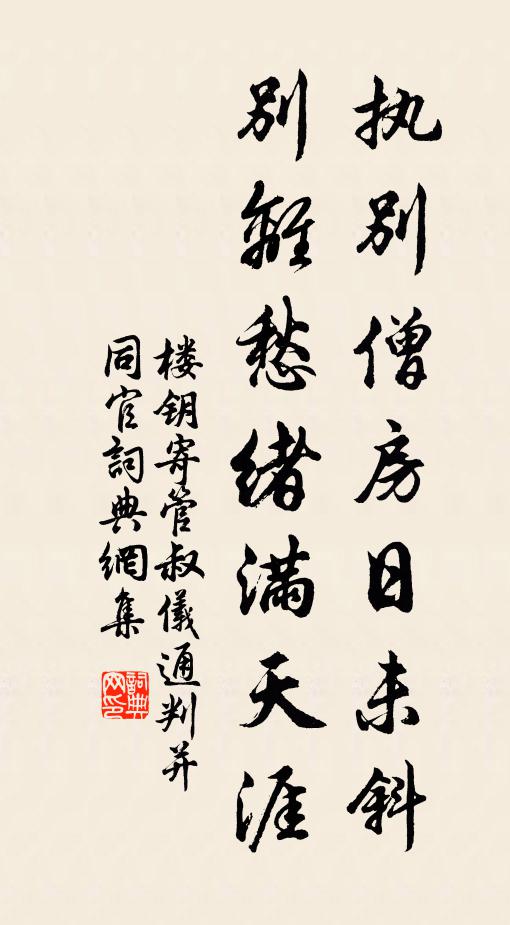 执别僧房日未斜
别離愁绪满天涯
楼钥寄管叔儀通判并
同官詞典網集
詞典网印